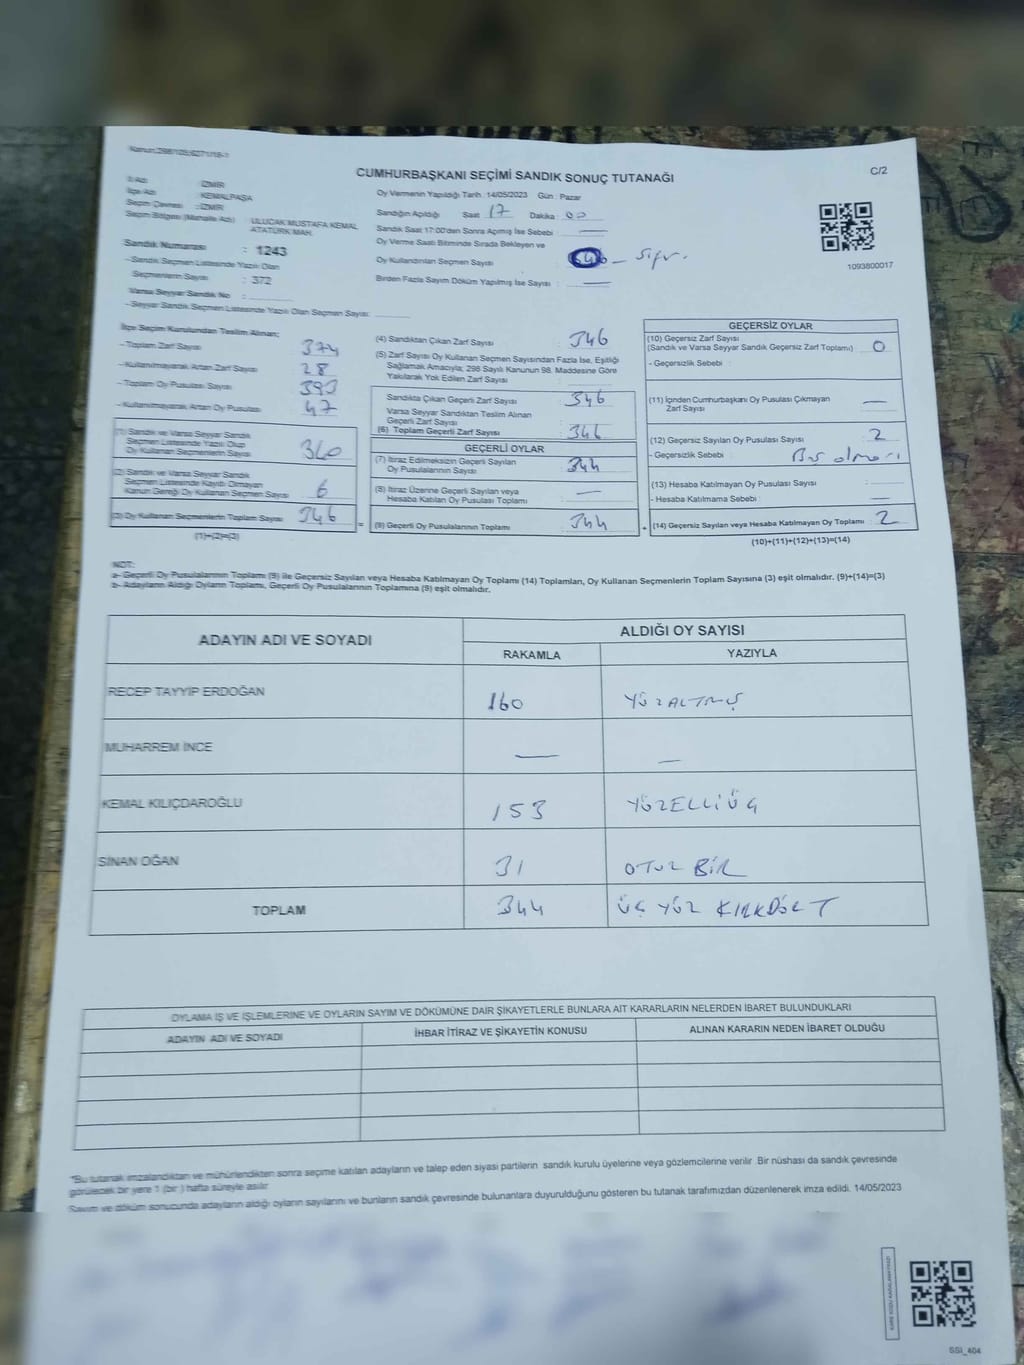 CUMHURBAŞKANI SEÇİMİ SANDIK SONUÇ TUTANAĞI
C/2
İli Adı : İZMİR
İlçe Adı : KEMALPAŞA
Seçim Çevresi : İZMİR
Seçim Bölgesi (Mahalle Adı) : ULUCAK MUSTAFA KEMAL
ATATÜRK MAH.
Sandık Numarası : 1243
- Sandık Seçmen Listesinde Yazılı Olan
Seçmenlerin Sayısı : 372
Varsa Seyyar Sandık No :
- Seyyar Sandık Seçmen Listesinde Yazılı Olan Seçmen Sayısı:
Oy Vermenin Yapıldığı Tarih : 14/05/2023 Gün : Pazar
Sandığın Açıldığı Saat : 17 Dakika : 00
Sandık Saat 17:00'den Sonra Açılmış İse Sebebi : —
Oy Verme Saati Bitiminde Sırada Bekleyen ve
Oy Kullandırılan Seçmen Sayısı : — Sıfır.
Birden Fazla Sayım Döküm Yapılmış İse Sayısı : —
1093800017
İlçe Seçim Kurulundan Teslim Alınan;
- Toplam Zarf Sayısı : 374
- Kullanılmayarak Artan Zarf Sayısı : 28
- Toplam Oy Pusulası Sayısı : 393
- Kullanılmayarak Artan Oy Pusulası : 47
(1) Sandık ve Varsa Seyyar Sandık
Seçmen Listesinde Yazılı Olup
Oy Kullanan Seçmenlerin Sayısı : 340
(2) Sandık ve Varsa Seyyar Sandık
Seçmen Listesinde Kaydı Olmayan
Kanun Gereği Oy Kullanan Seçmen Sayısı : 6
(3) Oy Kullanan Seçmenlerin Toplam Sayısı : 346
(1)+(2)=(3)
(4) Sandıktan Çıkan Zarf Sayısı : 346
(5) Zarf Sayısı Oy Kullanan Seçmen Sayısından Fazla İse, Eşitliği
Sağlamak Amacıyla; 298 Sayılı Kanunun 98. Maddesine Göre
Yakılarak Yok Edilen Zarf Sayısı :
Sandıkta Çıkan Geçerli Zarf Sayısı : 346
Varsa Seyyar Sandıktan Teslim Alınan
Geçerli Zarf Sayısı :
(6) Toplam Geçerli Zarf Sayısı : 346
GEÇERLİ OYLAR
(7) İtiraz Edilmeksizin Geçerli Sayılan
Oy Pusulalarının Sayısı : 344
(8) İtiraz Üzerine Geçerli Sayılan veya
Hesaba Katılan Oy Pusulası Toplamı : —
(9) Geçerli Oy Pusulalarının Toplamı : 344
GEÇERSİZ OYLAR
(10) Geçersiz Zarf Sayısı
(Sandık ve Varsa Seyyar Sandık Geçersiz Zarf Toplamı) : 0
- Geçersizlik Sebebi :
(11) İçinden Cumhurbaşkanı Oy Pusulası Çıkmayan
Zarf Sayısı : —
(12) Geçersiz Sayılan Oy Pusulası Sayısı : 2
- Geçersizlik Sebebi : Boş olması
(13) Hesaba Katılmayan Oy Pusulası Sayısı :
- Hesaba Katılmama Sebebi : —
(14) Geçersiz Sayılan veya Hesaba Katılmayan Oy Toplamı : 2
(10)+(11)+(12)+(13)=(14)
NOT:
a- Geçerli Oy Pusulalarının Toplamı (9) ile Geçersiz Sayılan veya Hesaba Katılmayan Oy Toplamı (14) Toplamları, Oy Kullanan Seçmenlerin Toplam Sayısına (3) eşit olmalıdır. (9)+(14)=(3)
b- Adayların Aldığı Oyların Toplamı, Geçerli Oy Pusulalarının Toplamına (9) eşit olmalıdır.
ADAYIN ADI VE SOYADI
ALDIĞI OY SAYISI
RAKAMLA YAZIYLA
RECEP TAYYİP ERDOĞAN 160 YÜZALTMIŞ
MUHARREM İNCE — —
KEMAL KILIÇDAROĞLU 153 YÜZELLİÜÇ
SİNAN OĞAN 31 OTUZ BİR
TOPLAM 344 ÜÇ YÜZ KIRKDÖRT
OYLAMA İŞ VE İŞLEMLERİNE VE OYLARIN SAYIM VE DÖKÜMÜNE DAİR ŞİKAYETLERLE BUNLARA AİT KARARLARIN NELERDEN İBARET BULUNDUKLARI
ADAYIN ADI VE SOYADI İHBAR İTİRAZ VE ŞİKAYETİN KONUSU ALINAN KARARIN NEDEN İBARET OLDUĞU
*Bu tutanak imzalandıktan ve mühürlendikten sonra seçime katılan adayların ve talep eden siyasi partilerin sandık kurulu üyelerine veya gözlemcilerine verilir. Bir nüshası da sandık çevresinde
görülecek bir yere 1 (bir) hafta süreyle asılır.
Sayım ve döküm sonucunda adayların aldığı oyların sayılarını ve bunların sandık çevresinde bulunanlara duyurulduğunu gösteren bu tutanak tarafımızdan düzenlenerek imza edildi. 14/05/2023
SSI_404